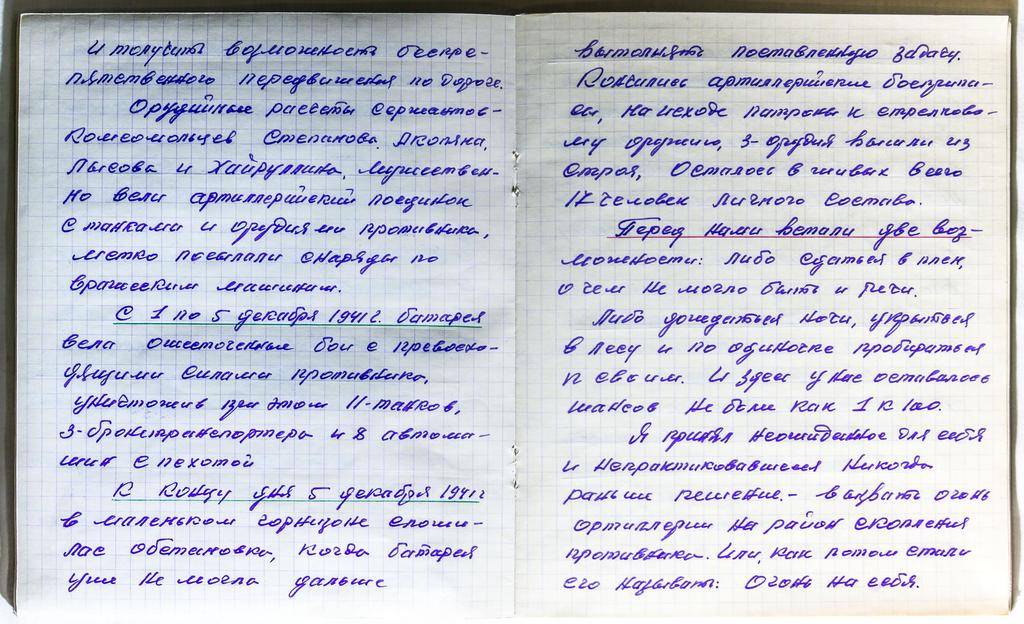 И получить возможность беспре-
пятственного передвижения по дороге.
Орудийные рассеты сержантов-
комсомольцев Степанова, Акопяна,
Лысова и Хайруллина, мужествен-
но вели артиллерийский поединок
с танками и орудиями противника,
метко посылали снаряды по
вражеским машинам.
С 1 по 5 декабря 1941 г. батарея
вела ожесточенные бои с превосхо-
дящими силами противника,
уничтожив при этом 11-танков,
3-бронетранспортера и 8 автома-
шин с пехотой
К концу дня 5 декабря 1941 г
в маленьком горнизоне сложи-
лас обстановка, когда батарея
уже не могла дальше
выполнять поставленную задачу.
Кончились артиллерийские боеприпа-
сы, на исходе патроны к стрелково-
му оружию, 3-орудия вышли из
строя, Осталось в живых всего
17 человек личного состава.
Перед нами встали две воз-
можности: либо сдаться в плен,
о чем не могло быть и речи.
Либо дождаться ночи, укрыться
в лесу и по одиночке пробираться
к своим. И здес у нас оставалось
шансов не более как 1 к 100.
Я принял неожиданное для себя
и непрактиковавшееся никогда
раньше решение.- вызвать огонь
артиллерии на район скопления
противника. Или, как потом стали
его называть: Огонь на себя.